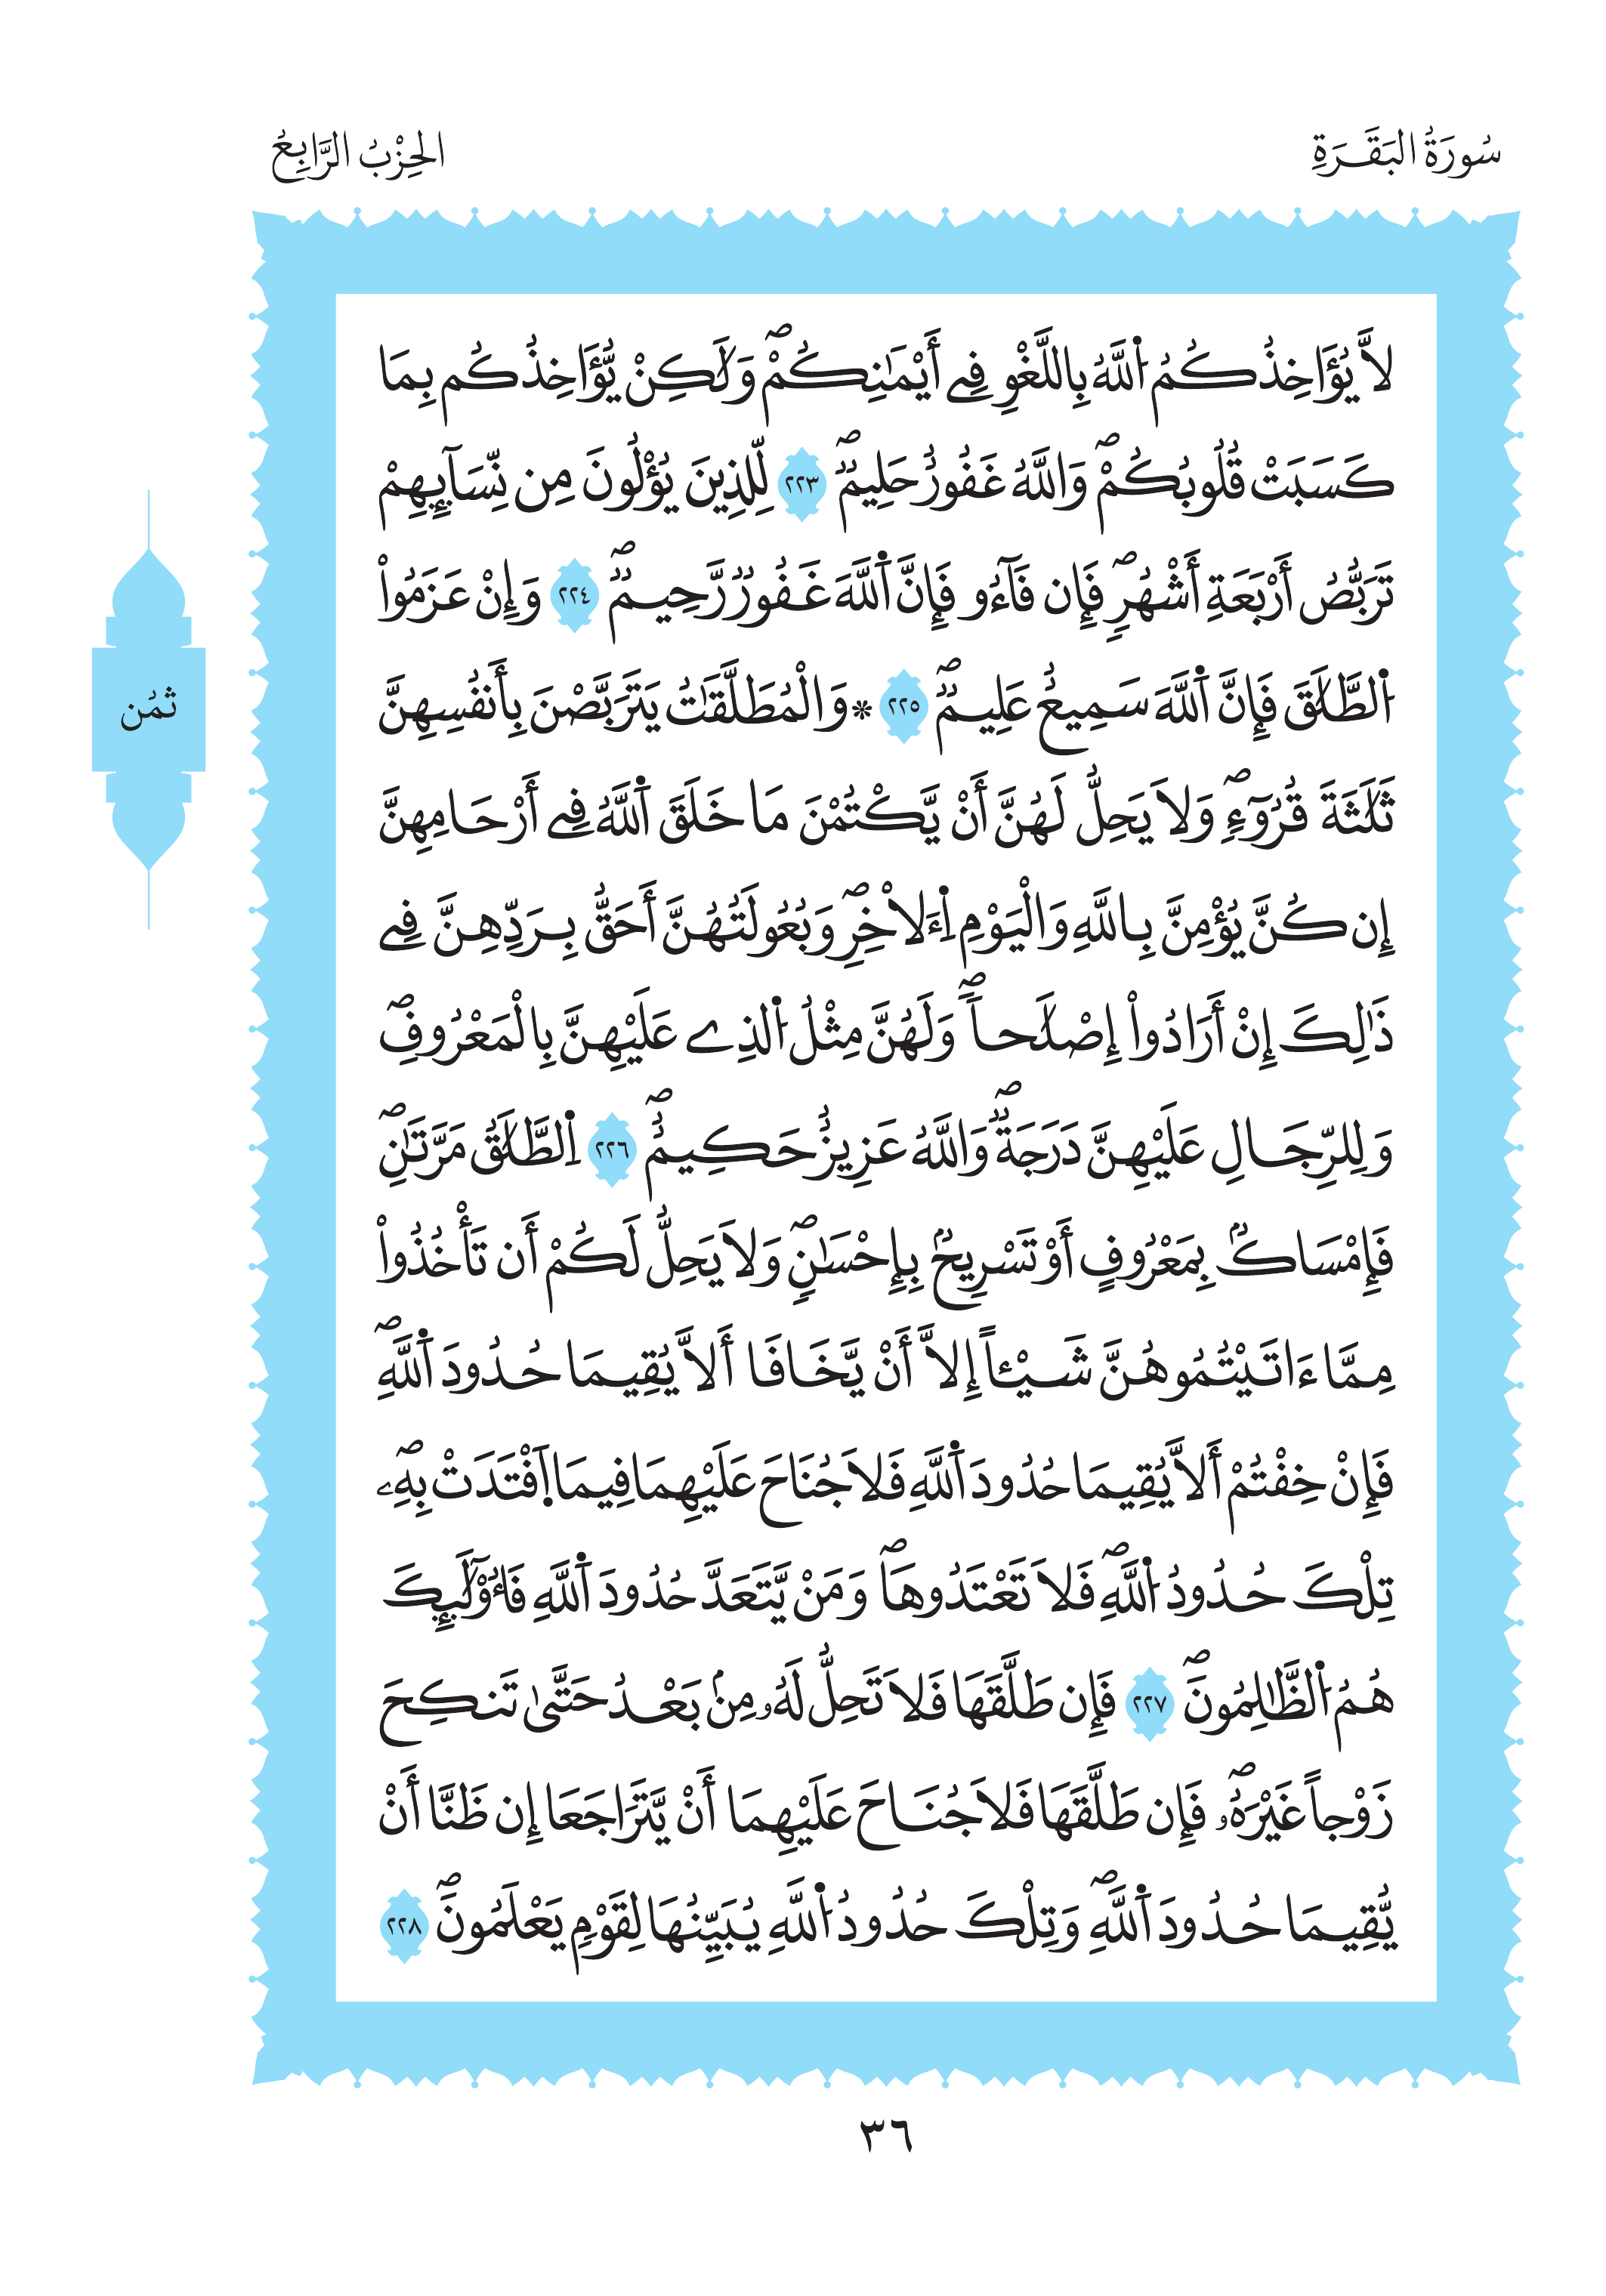 سُورَةُ البَقَرَةِ
الحِزْبُ الرَّابِعُ
لاَّ يُؤَاخِذُكُمُ اُ۬للَّهُ بِاللَّغْوِ فِےٓ أَيْمَٰنِكُمْۖ وَلَٰكِنْ يُّؤَاخِذُكُم بِمَا
كَسَبَتْ قُلُوبُكُمْۖ وَاللَّهُ غَفُورٌ حَلِيمٌۖ ٢٢٣ لِّلذِينَ يُؤْلُونَ مِن نِّسَآئِهِمْ
تَرَبُّصُ أَرْبَعَةِ أَشْهُرٍۖ فَإِن فَآءُو فَإِنَّ اَ۬للَّهَ غَفُورٌ رَّحِيمٌۖ ٢٢٤ وَإِنْ عَزَمُواْ
اُ۬لطَّلَٰقَ فَإِنَّ اَ۬للَّهَ سَمِيعٌ عَلِيمٌۖ ٢٢٥ * وَالْمُطَلَّقَٰتُ يَتَرَبَّصْنَ بِأَنفُسِهِنَّ
ثَلَٰثَةَ قُرُوٓءٍۖ وَلاَ يَحِلُّ لَهُنَّ أَنْ يَّكْتُمْنَ مَا خَلَقَ اَ۬للَّهُ فِےٓ أَرْحَامِهِنَّ
إِن كُنَّ يُؤْمِنَّ بِاللَّهِ وَالْيَوْمِ اِ۬ءَلاْخِرِۖ وَبُعُولَتُهُنَّ أَحَقُّ بِرَدِّهِنَّ فِے
ذَٰلِكَ إِنْ أَرَادُوٓاْ إِصْلَٰحاٗۖ وَلَهُنَّ مِثْلُ اُ۬لذِے عَلَيْهِنَّ بِالْمَعْرُوفِۖ
وَلِلرِّجَالِ عَلَيْهِنَّ دَرَجَةٌۖ وَاللَّهُ عَزِيزٌ حَكِيمٌۖ ٢٢٦ اِ۬لطَّلَٰقُ مَرَّتَٰنِۖ
فَإِمْسَاكُۢ بِمَعْرُوفٍ أَوْ تَسْرِيحُۢ بِإِحْسَٰنٍۖ وَلاَ يَحِلُّ لَكُمْ أَن تَأْخُذُواْ
مِمَّا ءَاتَيْتُمُوهُنَّ شَيْـٔاً إِلاَّ أَنْ يَّخَافَا أَلاَّ يُقِيمَا حُدُودَ اَ۬للَّهِۖ
فَإِنْ خِفْتُمُۥٓ أَلاَّ يُقِيمَا حُدُودَ اَ۬للَّهِ فَلاَ جُنَاحَ عَلَيْهِمَا فِيمَا اَ۪فْتَدَتْ بِهِۦۖ
تِلْكَ حُدُودُ اُ۬للَّهِۖ فَلاَ تَعْتَدُوهَاۖ وَمَنْ يَّتَعَدَّ حُدُودَ اَ۬للَّهِ فَأُوْلَٰٓئِكَ
هُمُ اُ۬لظَّٰلِمُونَۖ ٢٢٧ فَإِن طَلَّقَهَا فَلاَ تَحِلُّ لَهُۥ مِنۢ بَعْدُ حَتَّىٰ تَنكِحَ
زَوْجاً غَيْرَهُۥۖ فَإِن طَلَّقَهَا فَلاَ جُنَاحَ عَلَيْهِمَا أَنْ يَّتَرَاجَعَا إِن ظَنَّا أَنْ
يُّقِيمَا حُدُودَ اَ۬للَّهِۖ وَتِلْكَ حُدُودُ اُ۬للَّهِ يُبَيِّنُهَا لِقَوْمٍ يَعْلَمُونَۖ ٢٢٨
ثمُن
٣٦